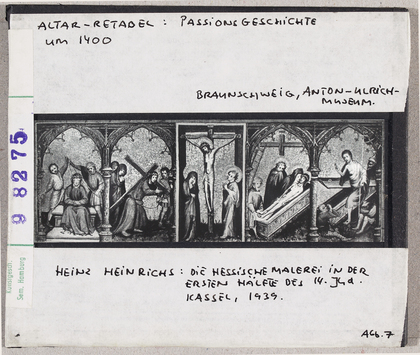 ALTAR-RETABEL : PASSIONSGESCHICHTE
UM 1400
BRAUNSCHWEIG, ANTON-ULRICH-
MUSEUM.
9 8275
Kunstgesch.
Sem. Hamburg
HEINZ HEINRICHS: DIE HESSISCHE MALEREI IN DER
ERSTEN HÄLFTE DES 14. Jhd.
KASSEL, 1939.
Abb. 7